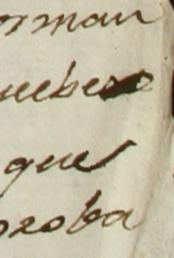 orman
uebe
que
oroba